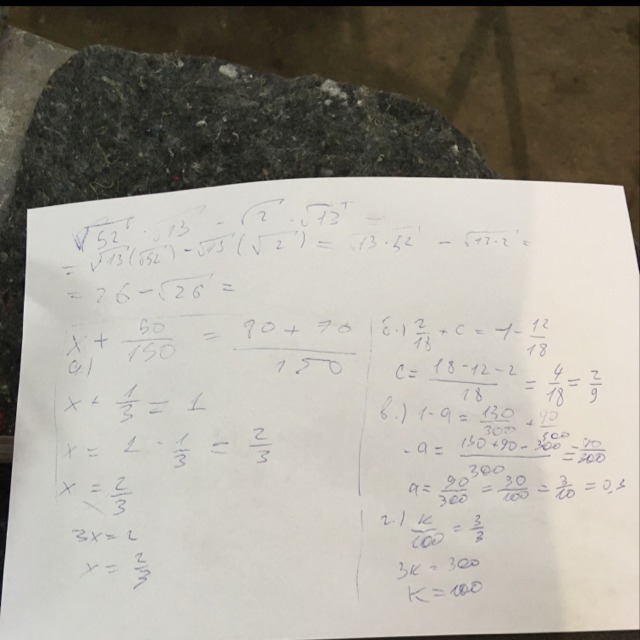 √52 · √13 - √2 · √13 =
= √13(√52) - √13(√2) = √13·52 - √13·2 =
= 26 - √26 =
x + 50/150 = (80 + 70)/150
a)
x + 1/3 = 1
x = 1 - 1/3 = 2/3
x = 2/3
3x = 2
x = 2/3
б.) 2/18 + c = 1 - 12/18
c = (18-12-2)/18 = 4/18 = 2/9
в.) 1-a = 130/300 +
a = 90/300 = 30/100 = 3/10 = 0,3
г.) k/100 = 3/3
3k = 300
k = 100